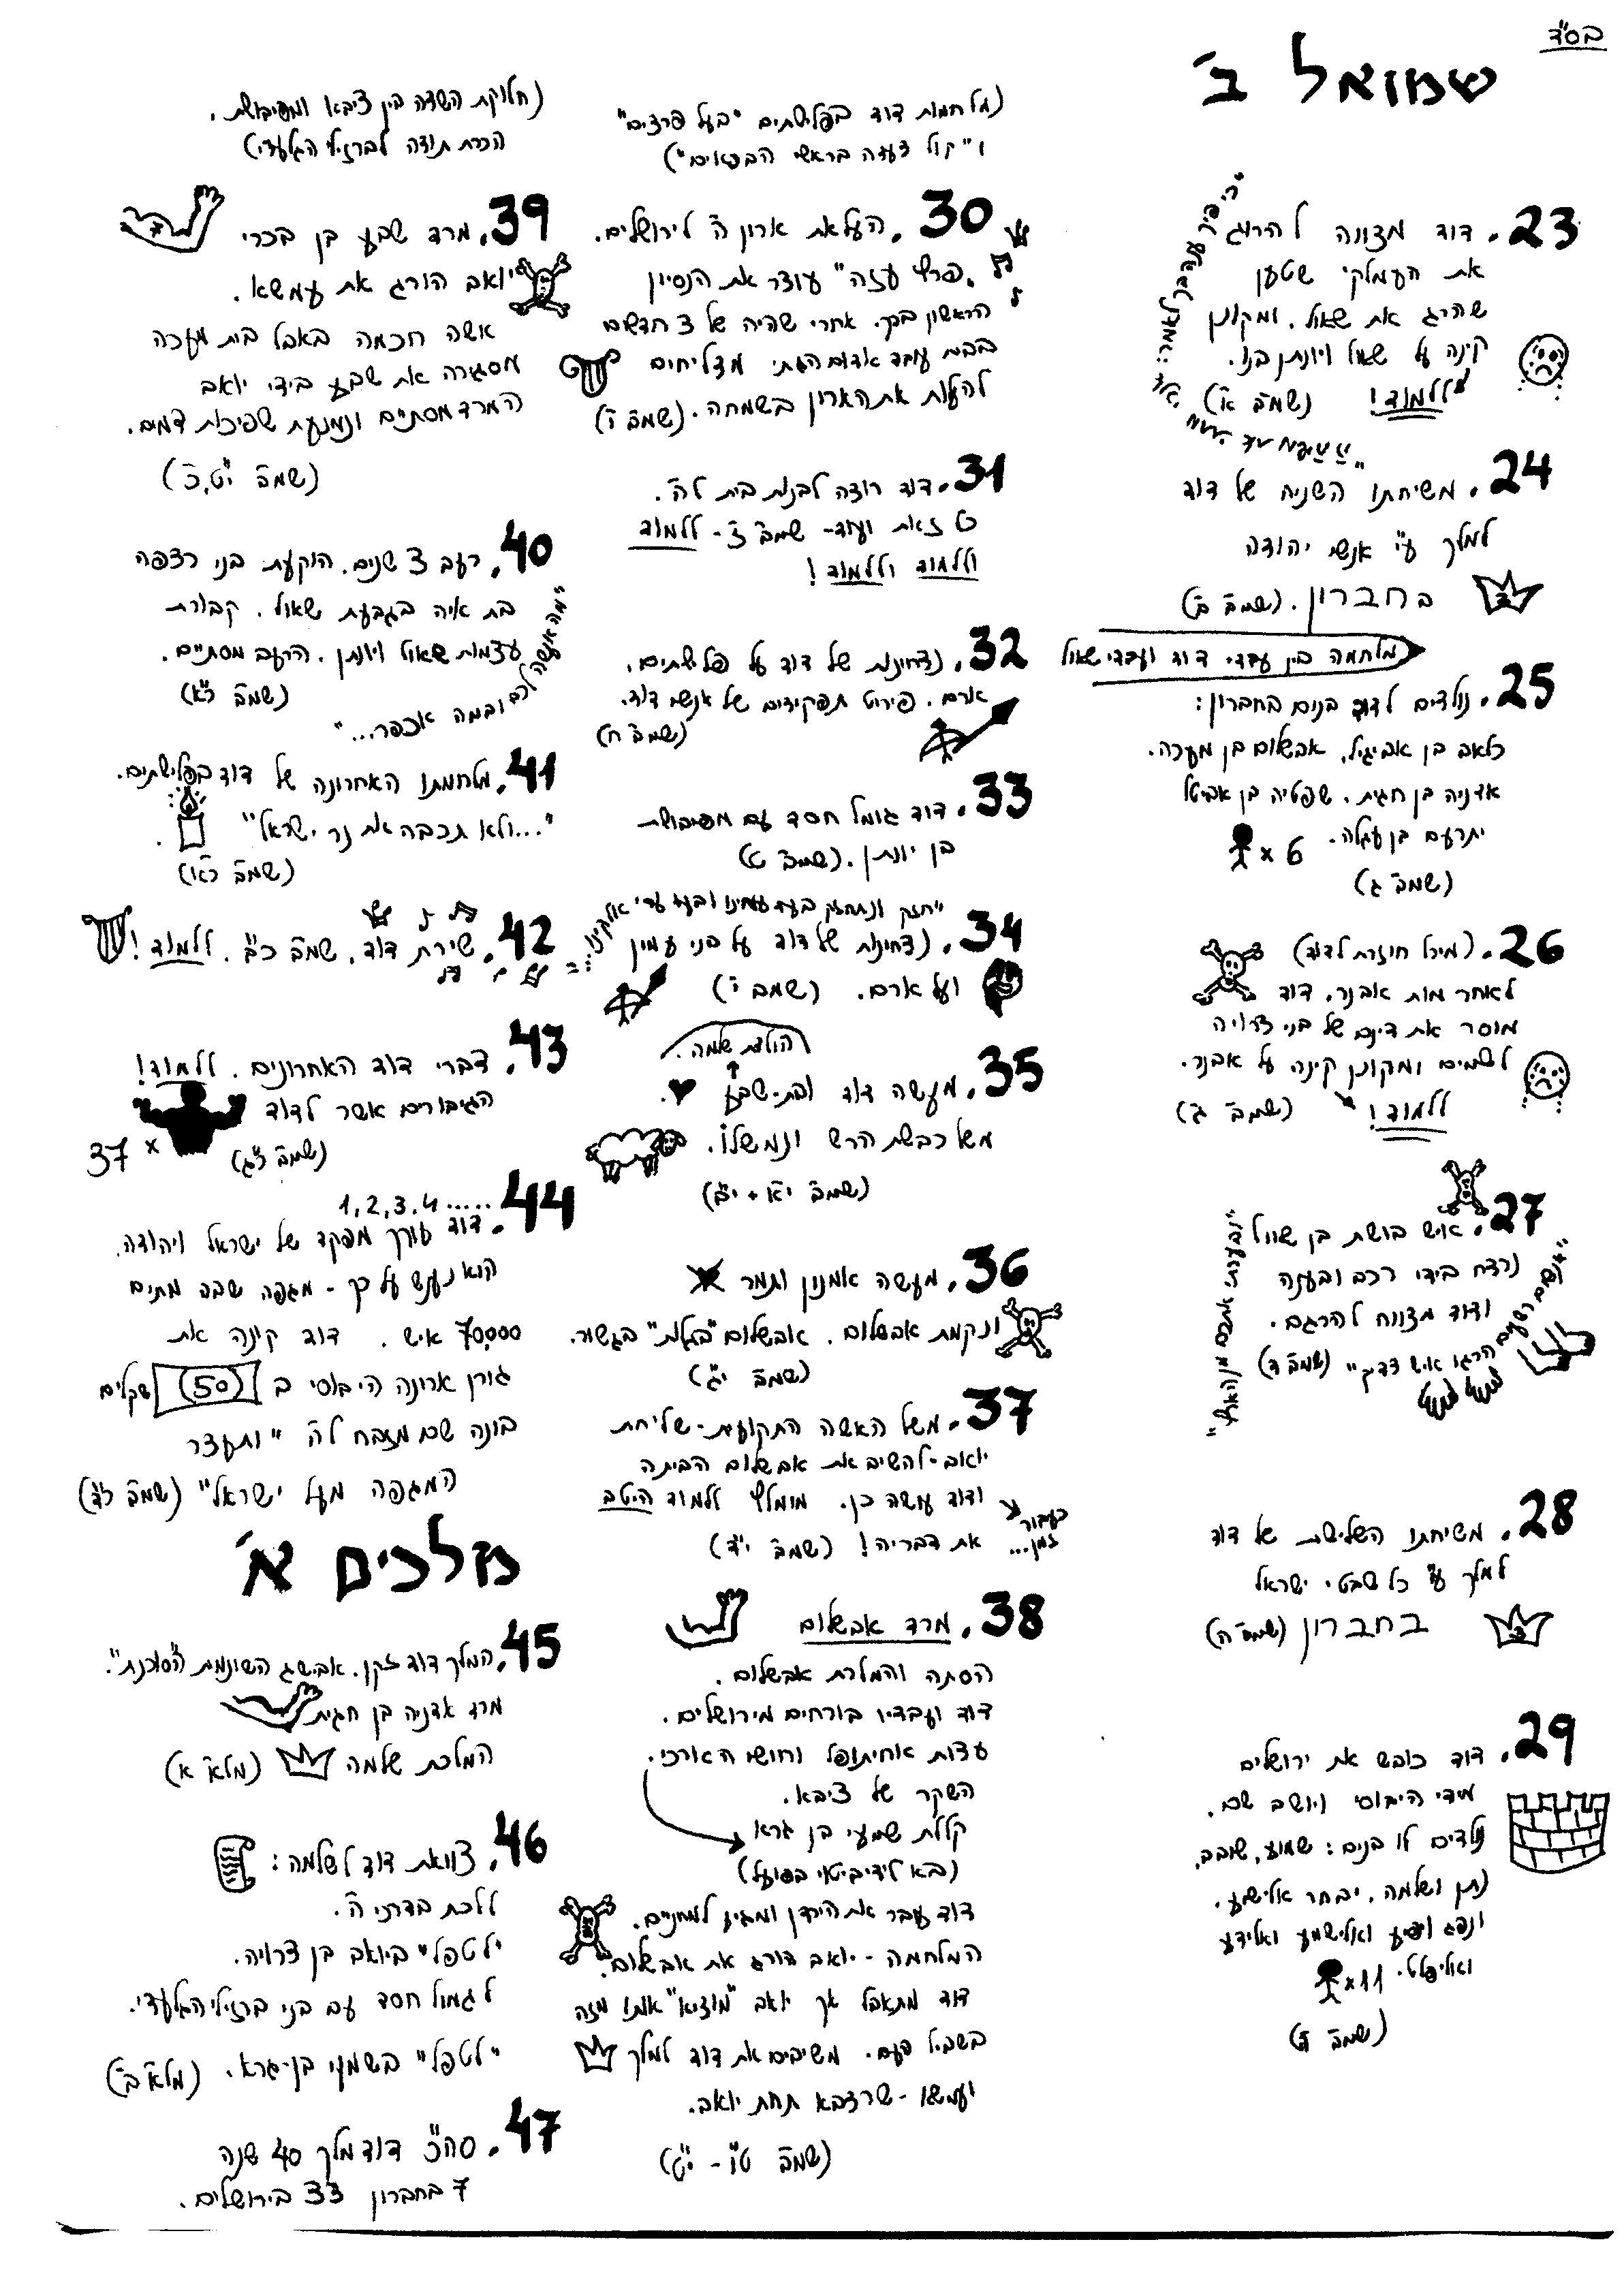 בס"ד
שמואל ב'
23. דוד מצווה להרוג
את העמלקי שטען
שהרג את שאול. ומקונן
קינה על שאול ויונתן בנו.
ללמוד! (שמ"ב א')
24. משיחתו השניה של דוד
למלך ע"י אנשי יהודה
בחברון. (שמ"ב ב')
מלחמה בין עבדי דוד ועבדי שאול
25. נולדים לדוד בנים בחברון:
כלאב בן אביגיל, אבשלום בן מעכה.
אדניה בן חגית, שפטיה בן אביטל
יתרעם בן עגלה. 6 x
(שמ"ב ג')
26. (מיכל חוזרת לדוד)
לאחר מות אבנר, דוד
מוסר את דינם של בני צרויה
לשמים ומקונן קינה על אבנר.
ללמוד! (שמ"ב ג')
27. איש בושת בן שאול
נרצח בידי רכב ובענה
ודוד מצווה להרגם.
"אנשים רשעים הרגו איש צדיק" (שמ"ב ד')
"ובערתי אתכם מן הארץ"
28. משיחתו השלישית של דוד
למלך ע"י כל שבטי ישראל
בחברון (שמ"ב ה)
29. דוד כובש את ירושלים
מידי היבוסי ויושב שם.
נולדים לו בנים: שמוע, שובב,
נתן ושלמה, יבחר אלישע,
ונפג ויפיע ואלישמע ואלידע
ואליפלט. 11 x
(שמ"ב ה')
(מלחמות דוד בפלישתים "בעל פרצים"
ו"קול צעדה בראשי הבכאים")
30. העלאת ארון ה' לירושלים.
"פרץ עזה" עוצר את הנסיון
הראשון בכך. אחרי שהיה של 3 חדשים
בבית עובד אדום הגתי מצליחים
להעלות את הארון בשמחה. (שמ"ב ו')
31. דוד רוצה לבנות בית לה'.
כל זאת ועוד- שמ"ב ז'- ללמוד
וללמוד וללמוד!
32. נצחונות של דוד על פלישתים,
ארם. פירוט תפקידים של אנשי דוד.
(שמ"ב ח)
33. דוד גומל חסד עם מפיבושת
בן יונתן. (שמ"ב ט)
"חזק ונתחזק בעד עמינו ובעד ערי אלקינו..."
34. נצחונות של דוד על בני עמון
ועל ארם. (שמ"ב י')
הולדת שלמה.
35. מעשה דוד ובת-שבע
משל כבשת הרש ונמשלו.
(שמ"ב י"א + י"ב)
36. מעשה אמנון ותמר
ונקמת אבשלום. אבשלום "בגלות" בגשור.
(שמ"ב י"ג)
37. משל האשה התקועית- שליחת
יואב-להשיב את אבשלום הביתה
ודוד עושה כן. מומלץ ללמוד היטב
כעבור זמן...
את דבריה! (שמ"ב י"ד)
38. מרד אבשלום
הסתה והמלכת אבשלום.
דוד ועבדיו בורחים מירושלים.
עצות אחיתופל וחושי הארכי.
השקר של ציבא.
קללת שמעי בן גרא
(בא לידי ביטוי בפועל)
דוד עובר את הירדן ומגיע למחניים.
המלחמה - יואב הורג את אבשלום.
דוד מתאבל אך יואב "מוציא" אותו מזה
בשביל העם. משיבים את דוד למלך
ועמשא - שר צבא תחת יואב.
(שמ"ב ט"ו - י"ט)
(חלוקת השדה בין ציבא ומפיבושת,
הכרת תודה לברזילי הגלעדי)
39. מרד שבע בן בכרי
יואב הורג את עמשא.
אשה חכמה באבל בית מעכה
מסגירה את שבע בידי יואב
המרד מסתיים ונמנעת שפיכות דמים.
(שמ"ב י"ט, כ')
40. רעב 3 שנים. הוקעת בני רצפה
בת איה בגבעת שאול. קבורת
עצמות שאול ויונתן. הרעב מסתיים.
(שמ"ב כ"א)
"מה אעשה לכם ובמה אכפר..."
41. מלחמתו האחרונה של דוד בפלישתים.
"...ולא תכבה את נר ישראל".
(שמ"ב כ"א)
42. שירת דוד, שמ"ב כ"ב. ללמוד!
43. דברי דוד האחרונים. ללמוד!
הגיבורים אשר לדוד
37 x
(שמ"ב כ"ג)
1,2,3,4.....
44. דוד עורך מפקד של ישראל ויהודה.
הוא נענש על כך - מגפה שבה מתים
70,000 איש. דוד קונה את
גורן ארונה היבוסי ב (50) שקלים
בונה שם מזבח לה' "ותעצר
המגפה מעל ישראל" (שמ"ב כ"ד)
מלכים א'
45. המלך דוד זקן. אבישג השונמית "הסוכנת".
מרד אדניה בן חגית
המלכת שלמה (מל"א א)
46. צוואת דוד לשלמה:
ללכת בדרכי ה'.
"לטפל" ביואב בן צרויה.
לגמול חסד עם בני ברזילי הגלעדי.
"לטפל" בשמעי בן-גרא. (מל"א ב')
47. סה"כ דוד מלך 40 שנה
7 בחברון 33 בירושלים.